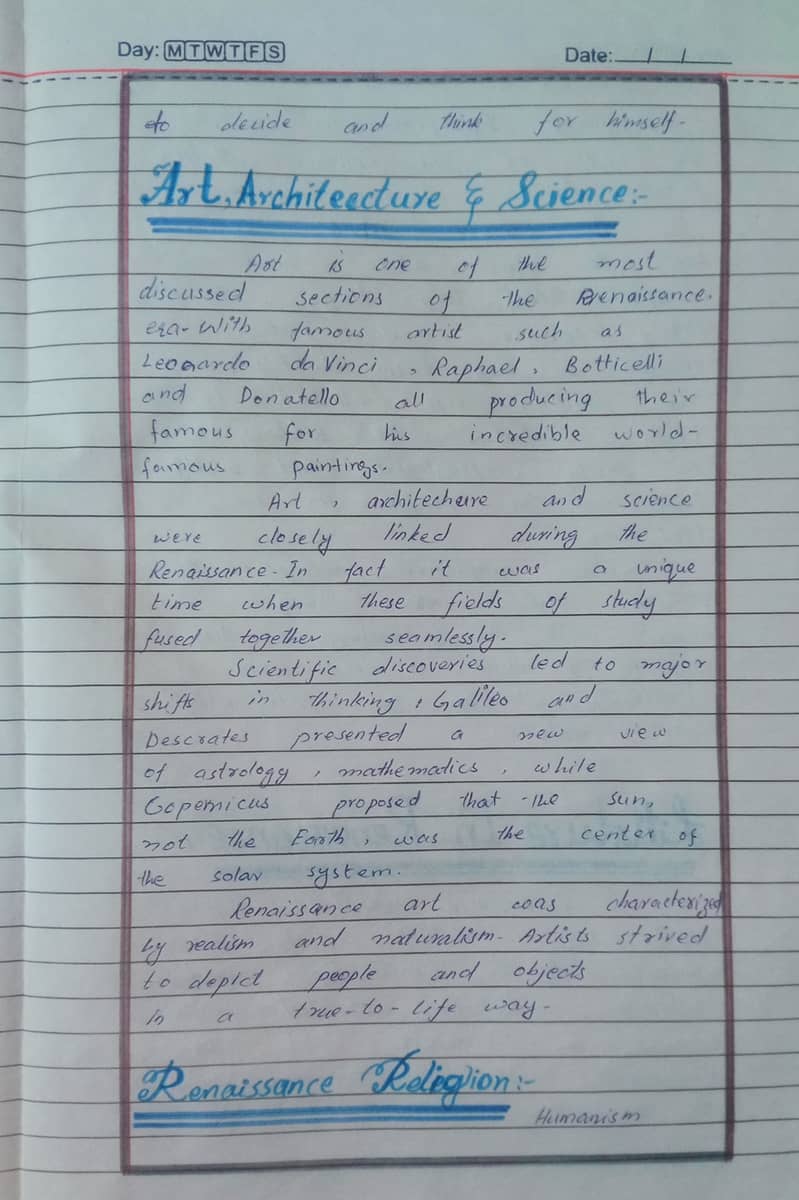 Day: M T W T F S Date: / /
to decide and think for himself.
Art, Architeecture & Science:-
Art is one of the most
discussed sections of the Renaissance.
era. With famous artist such as
Leonardo da Vinci , Raphael , Botticelli
and Donatello all producing their
famous for his incredible world-
famous paintings.
Art , architechure and science
were closely linked during the
Renaissance. In fact it was a unique
time when these fields of study
fused together seamlessly.
Scientific discoveries led to major
shifts in thinking , Galileo and
Descrates presented a new view
of astrology , mathematics , while
Copernicus proposed that the sun,
not the Earth , was the center of
the solar system.
Renaissance art was characterized
by realism and naturalism. Artists strived
to depict people and objects
in a true-to-life way.
Renaissance Religion:-
Humanism